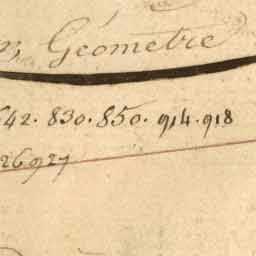 Géometre
642. 830. 850. 914. 918
26 927